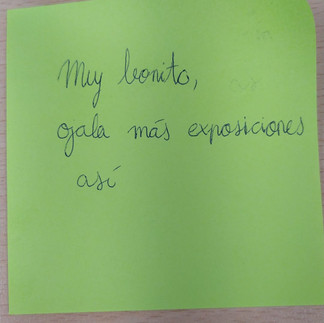 Muy bonito,
ojala más exposiciones
así